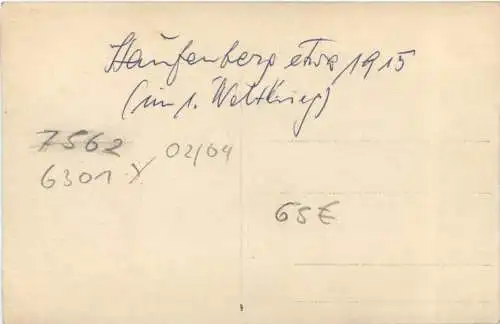 Staufenberg etwa 1915
(im 1. Weltkrieg)
7562
6301 02/04
65€